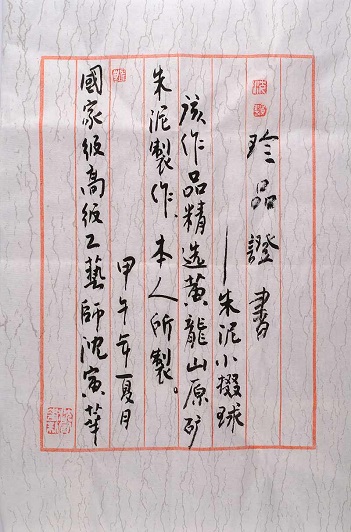 珍品證書
——朱泥小掇球
該作品精选黄龍山原矿
朱泥製作。本人所製。
甲午年夏月
國家级高级工藝師沈寅華